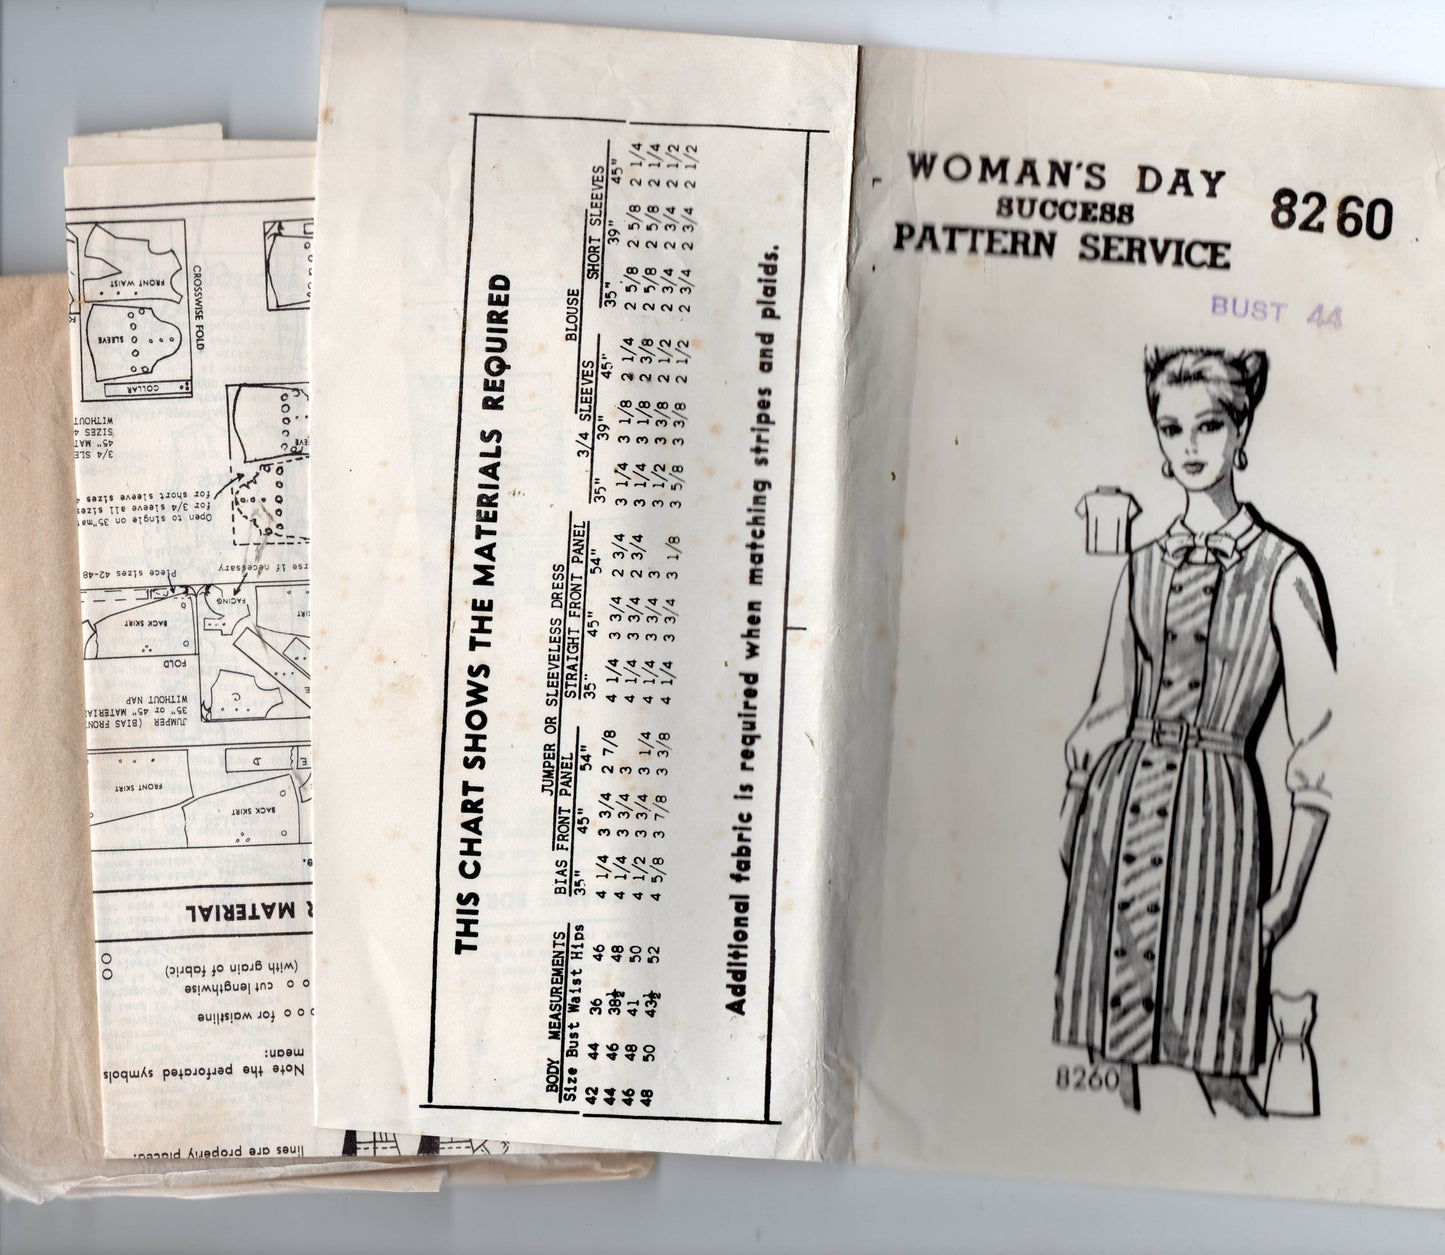 WOMAN'S DAY
SUCCESS
PATTERN SERVICE
8260
BUST 44
8260
THIS CHART SHOWS THE MATERIALS REQUIRED
JUMPER OR SLEEVELESS DRESS BLOUSE
BODY MEASUREMENTS BIAS FRONT PANEL STRAIGHT FRONT PANEL 3/4 SLEEVES SHORT SLEEVES
Size Bust Waist Hips 35" 45" 54" 35" 45" 54" 35" 39" 45" 35" 39" 45"
42 44 36 46 4 1/4 3 3/4 2 7/8 4 1/4 3 3/4 2 3/4 3 1/4 3 1/8 2 1/4 2 5/8 2 5/8 2 1/4
44 46 38½ 48 4 1/4 3 3/4 3 4 1/4 3 3/4 2 3/4 3 1/4 3 1/8 2 3/8 2 5/8 2 5/8 2 1/4
46 48 41 50 4 1/2 3 3/4 3 1/4 4 1/4 3 3/4 3 3 1/2 3 3/8 2 1/2 2 3/4 2 3/4 2 1/2
48 50 43½ 52 4 5/8 3 7/8 3 3/8 4 1/4 3 3/4 3 1/8 3 5/8 3 3/8 2 1/2 2 3/4 2 3/4 2 1/2
Additional fabric is required when matching stripes and plaids.
lines are properly placed.
Note the perforated symbols
mean:
o o o for waistline
o o cut lengthwise
(with grain of fabric)
MATERIAL
BACK SKIRT
FRONT SKIRT
D
E
JUMPER (BIAS FRONT
35" or 45" MATERIAL
WITHOUT NAP
C
FOLD
BACK SKIRT
FACING
Piece sizes 42-48
if necessary
Open to single on 35" mat
for 3/4 sleeve all sizes
for short sleeve sizes
3/4 SLE
45" MAT
SIZES 4
WITHOUT
COLLAR
SLEEVE
FRONT WAIST
CROSSWISE FOLD